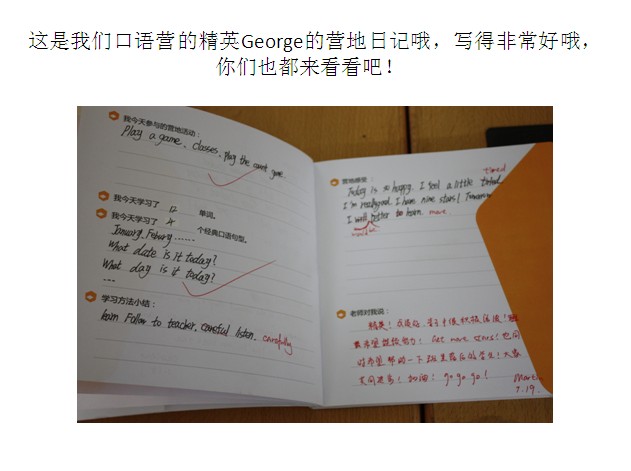 这是我们口语营的精英George的营地日记哦，写得非常好哦，
你们也都来看看吧！
我今天参与的营地活动：
Play a game、classes、play the count game.
我今天学习了 12 单词。
我今天学习了 4 个经典口语句型。
January、Febury ……
What date is it today?
What day is it today?
...
学习方法小结：
learn Follow to teacher, careful listen. carefully
营地感受：
tired
Today is so happy. I feel a little
I'm I have nine stars! Tomorrow
I will better to learn more.
老师对我说：
精英！
继续努力！ Get more stars! 也同
时希望帮助一下班里落后的学生！大家
共同进步！加油！ go go go!
7.19.